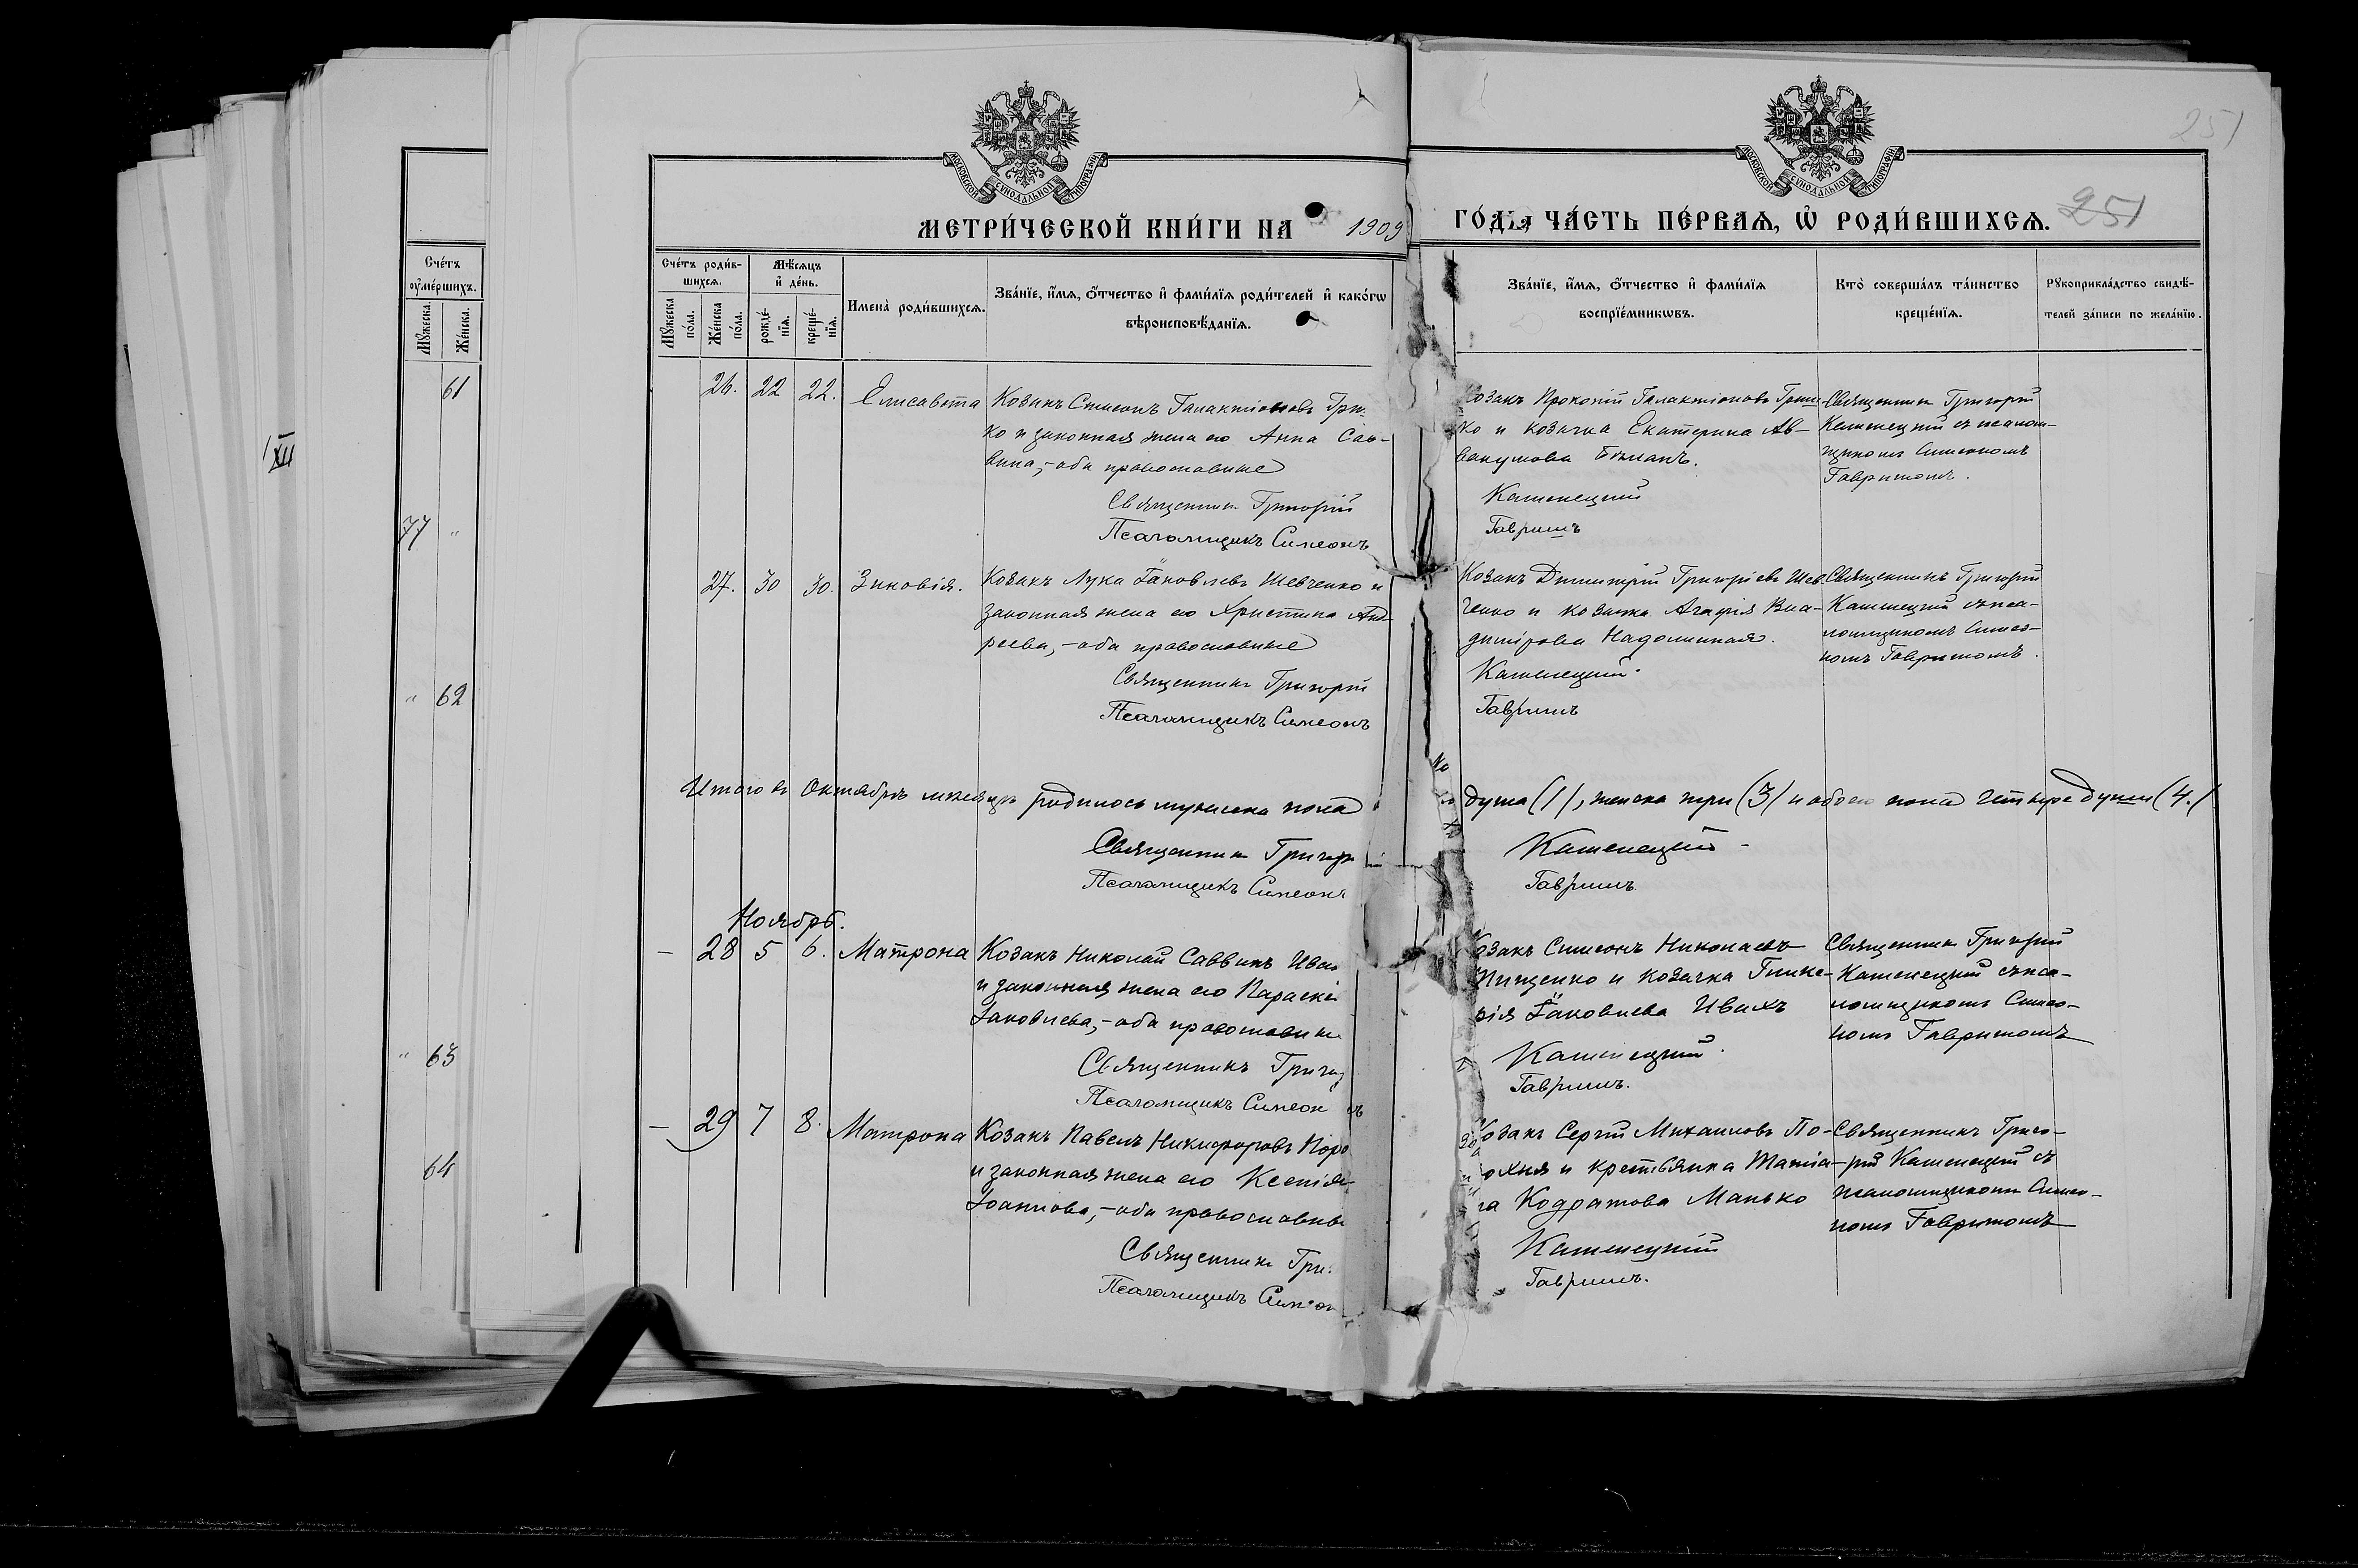 251
251
МОСКОВСКОЙ СУНОДАЛЬНОЙ ТИПОГРАФИИ
МОСКОВСКОЙ СУНОДАЛЬНОЙ ТИПОГРАФИИ
МЕТРИ́ЧЕСКОЙ КНИ́ГИ НА 1909
ГО́ДЪ ЧА́СТЬ ПЕ́РВАѦ, Ѡ҆ РОДИ́ВШИХСѦ.
Сче́тъ оумершихъ.
Мꙋжеска.
Же́нска.
61
77 "
" 62
" 63
64
1 XII
Сче́тъ роди́в-
шихсѧ.
Мꙋжеска по́ла.
Же́нска по́ла.
Мѣ́сѧцъ и҆ де́нь.
рожде́-нїѧ.
креще́-нїѧ.
И҆мена̀ роди́вшихсѧ.
Зва́нїе, и҆́мѧ, ѻ҆́тчество и҆ фами́лїѧ роди́телей и҆ како́гѡ
вѣроисповѣ́данїѧ.
Зва́нїе, и҆́мѧ, ѻ҆́тчество и҆ фами́лїѧ
воспрїе́мникѡвъ.
Кто̀ соверша́лъ та́инство
креще́нїѧ.
Рꙋкоприкла́дство свидѣ́-
телей за́писи по жела́нїю.
26. 22 22. Елисавета
Козакъ Симеонъ Галактіоновъ Гри-
ко и законная жена его Анна Сав-
вина,- оба православные
Священникъ Григорій
Псаломщикъ Симеонъ
Козакъ Прокопій Галактіоновъ Гри-
ко и козачка Екатерина Ав-
вакумова
Каменецкій
Гавришъ
Священникъ Григорій
Каменецкій съ псалом-
щикомъ Симеономъ
Гавришомъ.
27. 30 30. Зиновія.
Козакъ Лука Іаковлевъ Шевченко и
законная жена его Христина Анд-
реева,- оба православные
Священникъ Григорій
Псаломщикъ Симеонъ
Козакъ Димитрій Григоріевъ Шев-
ченко и козачка Агафія Вла-
димірова
Каменецкій.
Гавришъ
Священникъ Григорій
Каменецкій съ пса-
ломщикомъ Симео-
номъ Гавришомъ.
Итого въ Октябрѣ мѣсяцѣ родилось мужеска пола
душа (1), женска три (3) и обоего пола четыре души (4.)
Священникъ Григорій
Псаломщикъ Симеонъ
Каменецкій
Гавришъ.
Ноябрь.
— 28 5 6. Матрона
Козакъ Николай Саввинъ Ивах
и законная жена его Параскев
Іаковлева,- оба православные
Священникъ Григо
Псаломщикъ Симеонъ
Козакъ Симеонъ Николаевъ
и козачка Глике-
рія Іаковлева Ивахъ
Каменецкій.
Гавришъ.
Священникъ Григорій
Каменецкій съ пса-
ломщикомъ Симео-
номъ Гавришомъ
— 29 7 8. Матрона
Козакъ Павелъ Никифоровъ Поро
и законная жена его Ксенія
Іоаннова,- оба православные
Священникъ Гри
Псаломщикъ Симеон
Козакъ Сергій Михаиловъ По-
рохня и крестьянка Татіа-
на Кодратова Манько
Каменецкій
Гавришъ.
Священникъ Григо-
рій Каменецкій съ
псаломщикомъ Симео-
номъ Гавришомъ